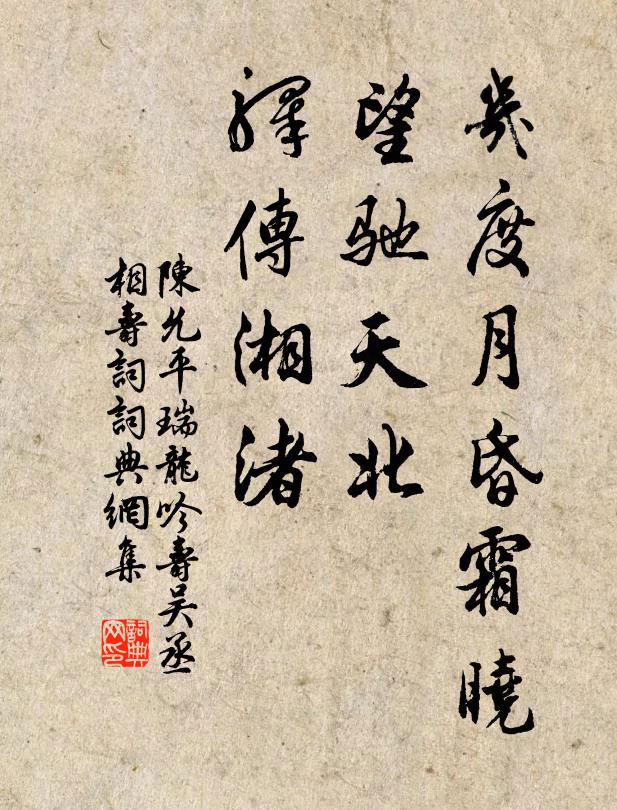 幾度月昏霜曉
望馳天北
驛傳湘渚
陳允平瑞龍吟壽吳丞
相壽詞詞典網集
詞典
网印